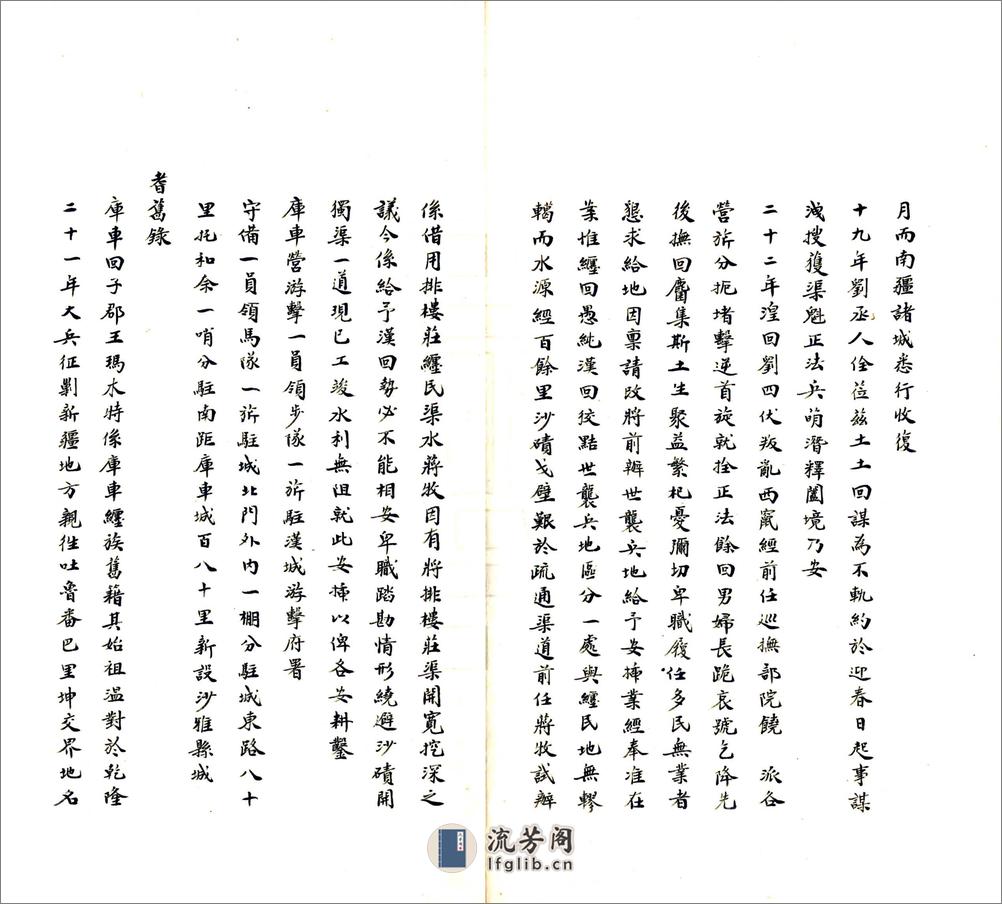 月而南疆諸城悉行收復
十九年劉丞人佺蒞茲土土回謀為不軌約於迎春日起事謀
洩搜獲渠魁正法兵萌潛釋闔境乃安
二十二年湟回劉四伏叛亂西竄經前任巡撫部院饒　派各
營旂分扼堵擊逆首旋就拴正法餘回男婦長跪哀號乞降先
後撫回麕集斯土生聚益繁杞憂彌切卑職履任多民無業者
懇求給地因稟請改將前辦世襲兵地給予安揷業經奉准在
案惟纏回愚純漢回狡黠世襲兵地區分一處與纏民地無轇
轕而水源經百餘里沙磧戈壁艱於疏通渠道前任蔣牧試辦
係借用排樓莊纏民渠水蔣牧因有將排樓莊渠開寬挖深之
議今係給予漢回勢必不能相安卑職踏勘情形繞避沙磧開
獨渠一道現已工竣水利無阻就此安揷以俾各安耕鑿
庫車營游擊一員領步隊一旂駐漢城游擊府署
守備一員領馬隊一旂駐城北門外內一棚分駐城東路八十
里托和奈一哨分駐南距庫車城百八十里新設沙雅縣城
耆舊錄
庫車回子郡王瑪木特係庫車纏族舊籍其始祖溫對於乾隆
二十一年大兵征剿新疆地方親徃吐魯番巴里坤交界地名
流芳阁
lfglib.cn